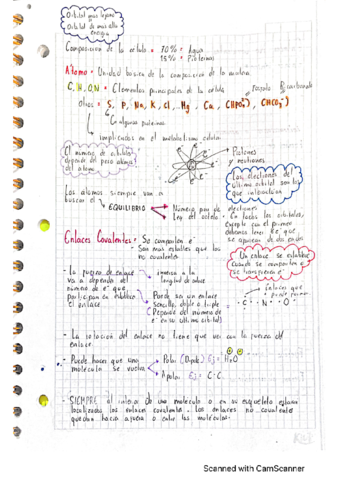 Orbital mas lejano
Orbital de mas alta
energía
Composicion de la celula = 70% = Agua
15% = Proteinas
Átomo = Unidad basica de la composicion de la materia.
C, H, O, N = Elementos principales de la celula
Fosfato Bicarbonato
Otros = S, P, Na, K, Cl, Mg, Ca, (HPO₄), (HCO₃)
En algunas proteinas
implicados en el metabolismo celular
El numero de orbitales
depende del peso atomico
del atomo
Protones
y neutrones
Los electrones del
ultimo orbital son los
que
Los atomos siempre van a
buscar el EQUILIBRIO
Numero par de electrones
Ley del octeto = En todos los orbitales,
excepto con el primero
debemos tener 8 e⁻ que
se agrupan de dos en dos
Enlaces Covalentes = Se comparten e⁻
Son mas estables que los
no covalentes
Un enlace se establece
cuando se comparten o
se transfieren e⁻
- La fuerza de enlace
va a depender del
numero de e⁻ que
participan en establecer
el enlace.
inversa a la
longitud de enlace
Puede ser un enlace
sencillo, doble o triple
(Depende del numero de
e⁻ en su ultimo orbital)
Enlaces que
puede formar
C N O
- La rotacion del enlace no tiene que ver con la fuerza del
enlace.
- Puede hacer que una
molecula se vuelva
Polar (Dipolo) Ej = H₂O
Apolar Ej = C-C
- SIEMPRE al interior de una molecula o en su esqueleto estaran
localizados los enlaces covalentes. Los enlaces no covalentes
quedan hacia afuera o entre las moleculas.
Scanned with CamScanner